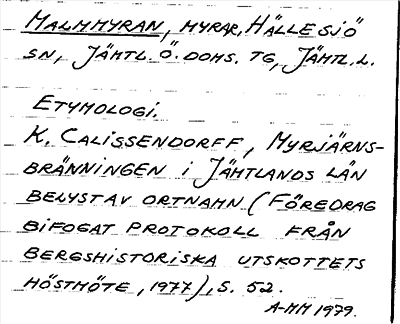 MALMMYRAN, MYRAR, HÄLLESJÖ
SN, JÄMTL. Ö. DOMS. TG, JÄMTL. L.
ETYMOLOGI.
K. CALISSENDORFF, MYRJÄRNS-
BRÄNNINGEN I JÄMTLANDS LÄN
BELYST AV ORTNAMN (FÖREDRAG
BIFOGAT PROTOKOLL FRÅN
BERGSHISTORISKA UTSKOTTETS
HÖSTMÖTE, 1977), S. 52.
A-MM 1979.